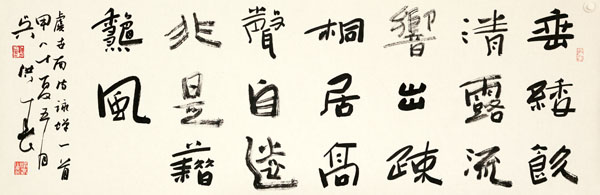 垂緌飲
清露流
響出疎
桐居高
聲自遠
非是藉
龝風
虞世南詩詠蟬一首
夏五月